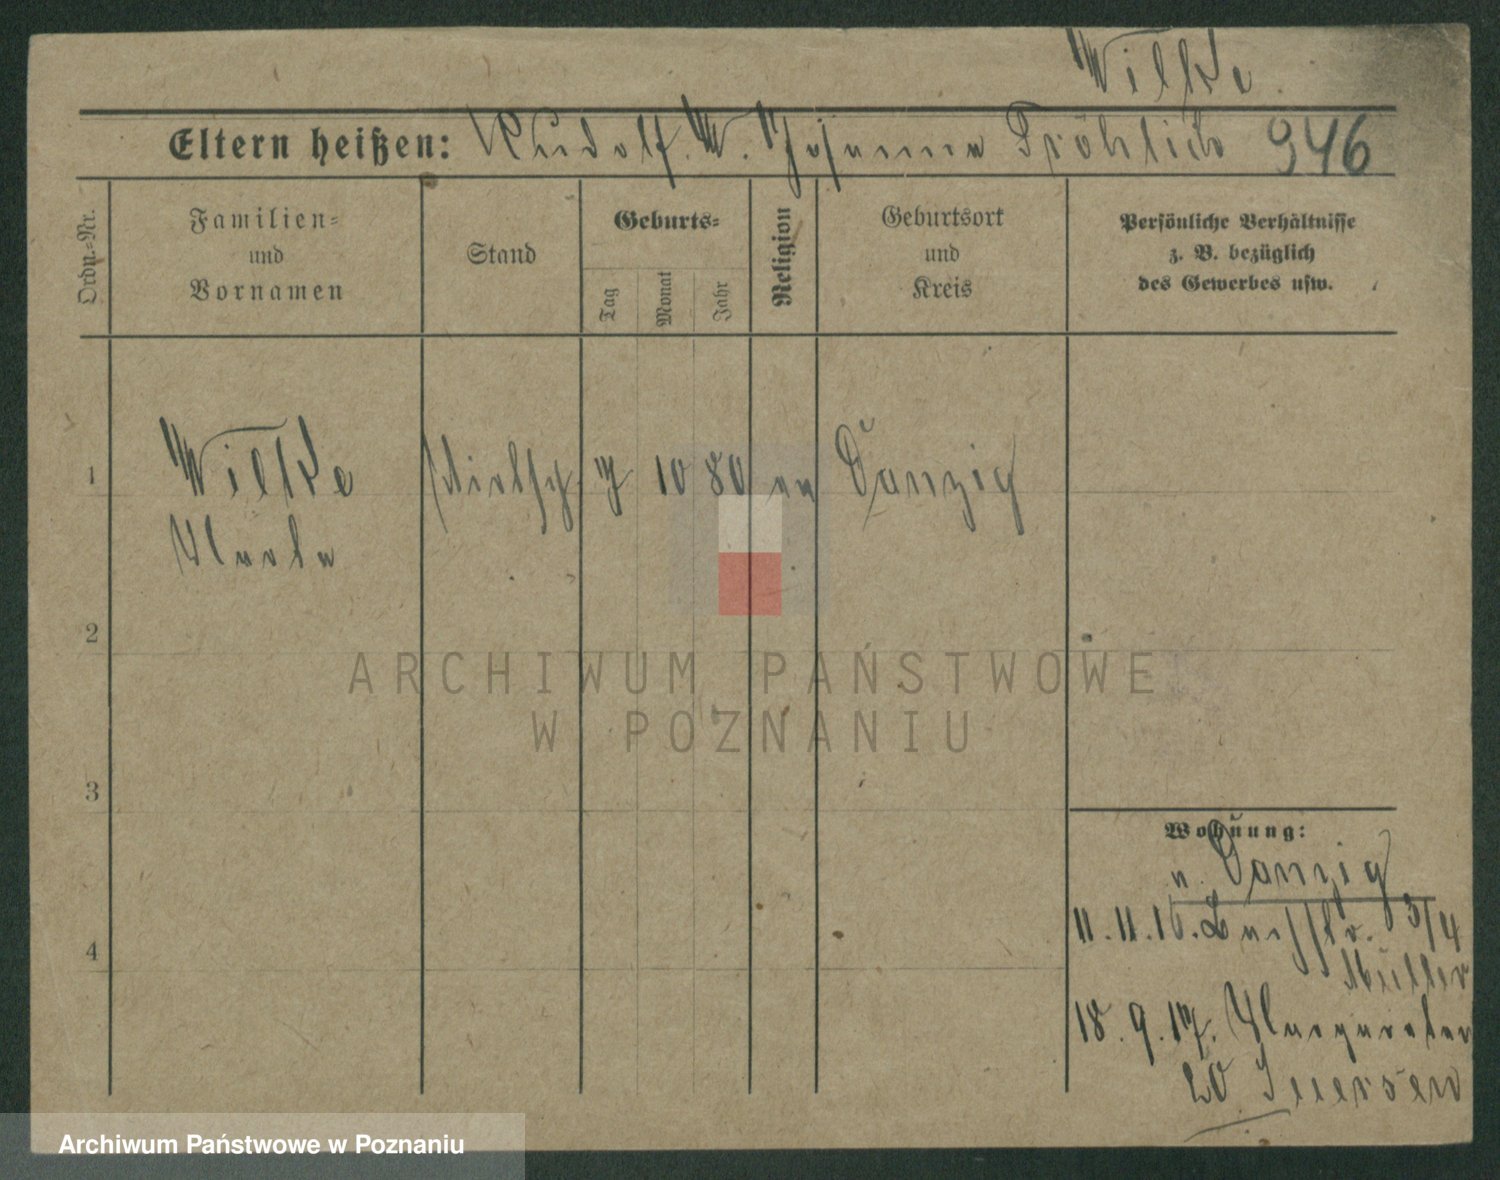 Wilke
Eltern heißen: Rudolf W. Johanna Fröhlich 946
Ordn.=Nr.
Familien=
und
Vornamen
Stand
Geburts=
Tag
Monat
Jahr
Religion
Geburtsort
und
Kreis
Persönliche Verhältnisse
z. B. bezüglich
des Gewerbes usw.
1 Wilke 7 10 80 ev Danzig
Martha
2
ARCHIWUM PAŃSTWOWE
W POZNANIU
3
4
Wohnung:
v. Danzig
11.11.16. 3/4
Müller
18.9.17. Margareten
20
Archiwum Państwowe w Poznaniu